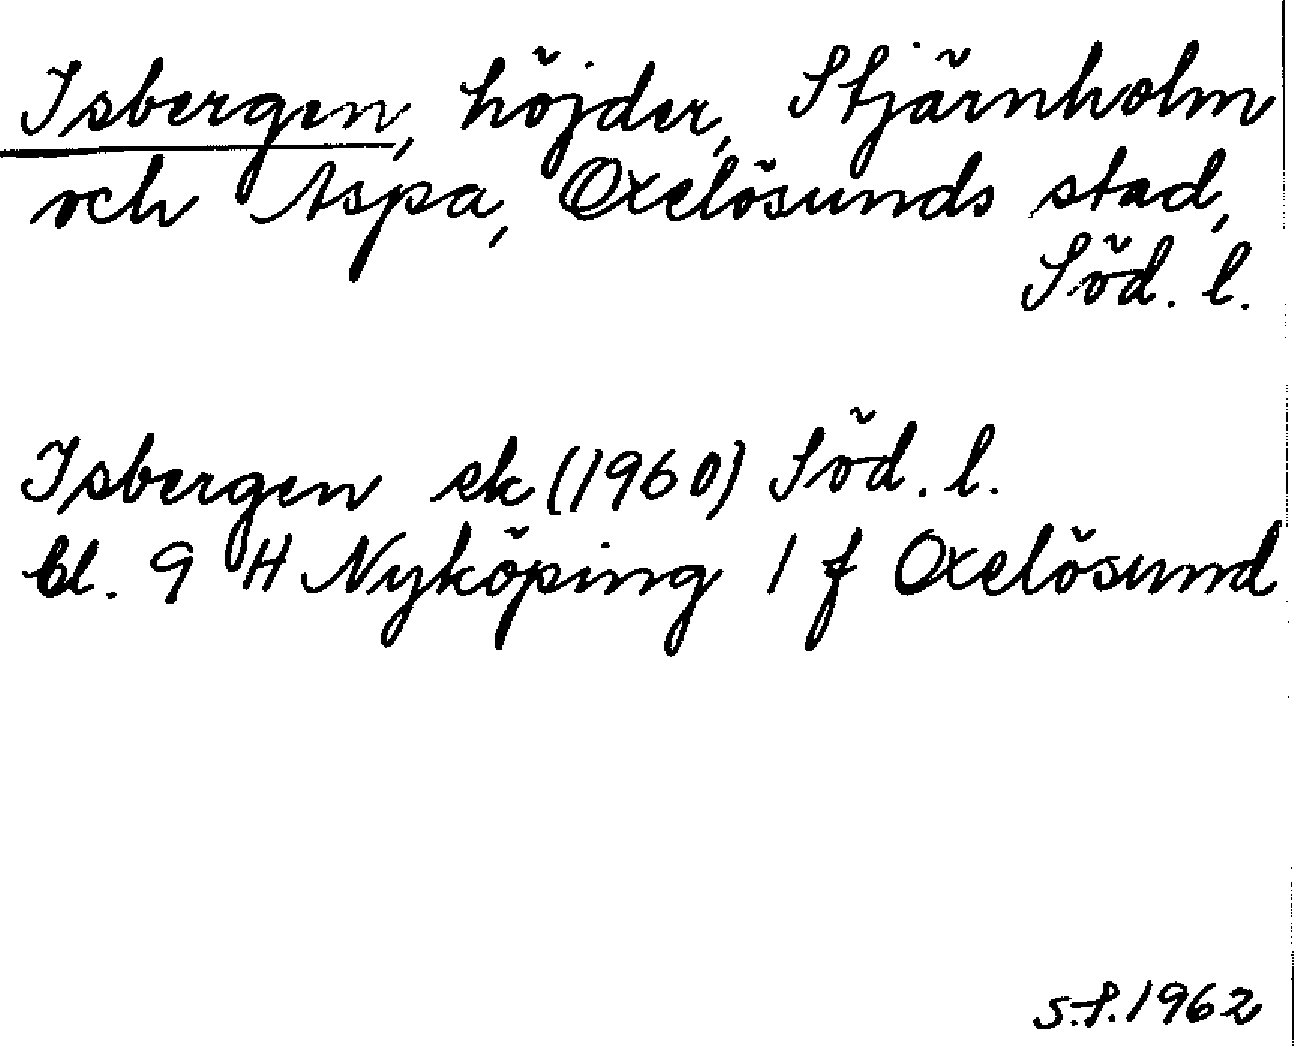 Isbergen, höjder, Stjärnholm
och Aspa, Oxelösunds stad,
Söd. l.
Isbergen ek (1960) Söd. l.
bl. 9 H Nyköping 1 f Oxelösund
S.S. 1962